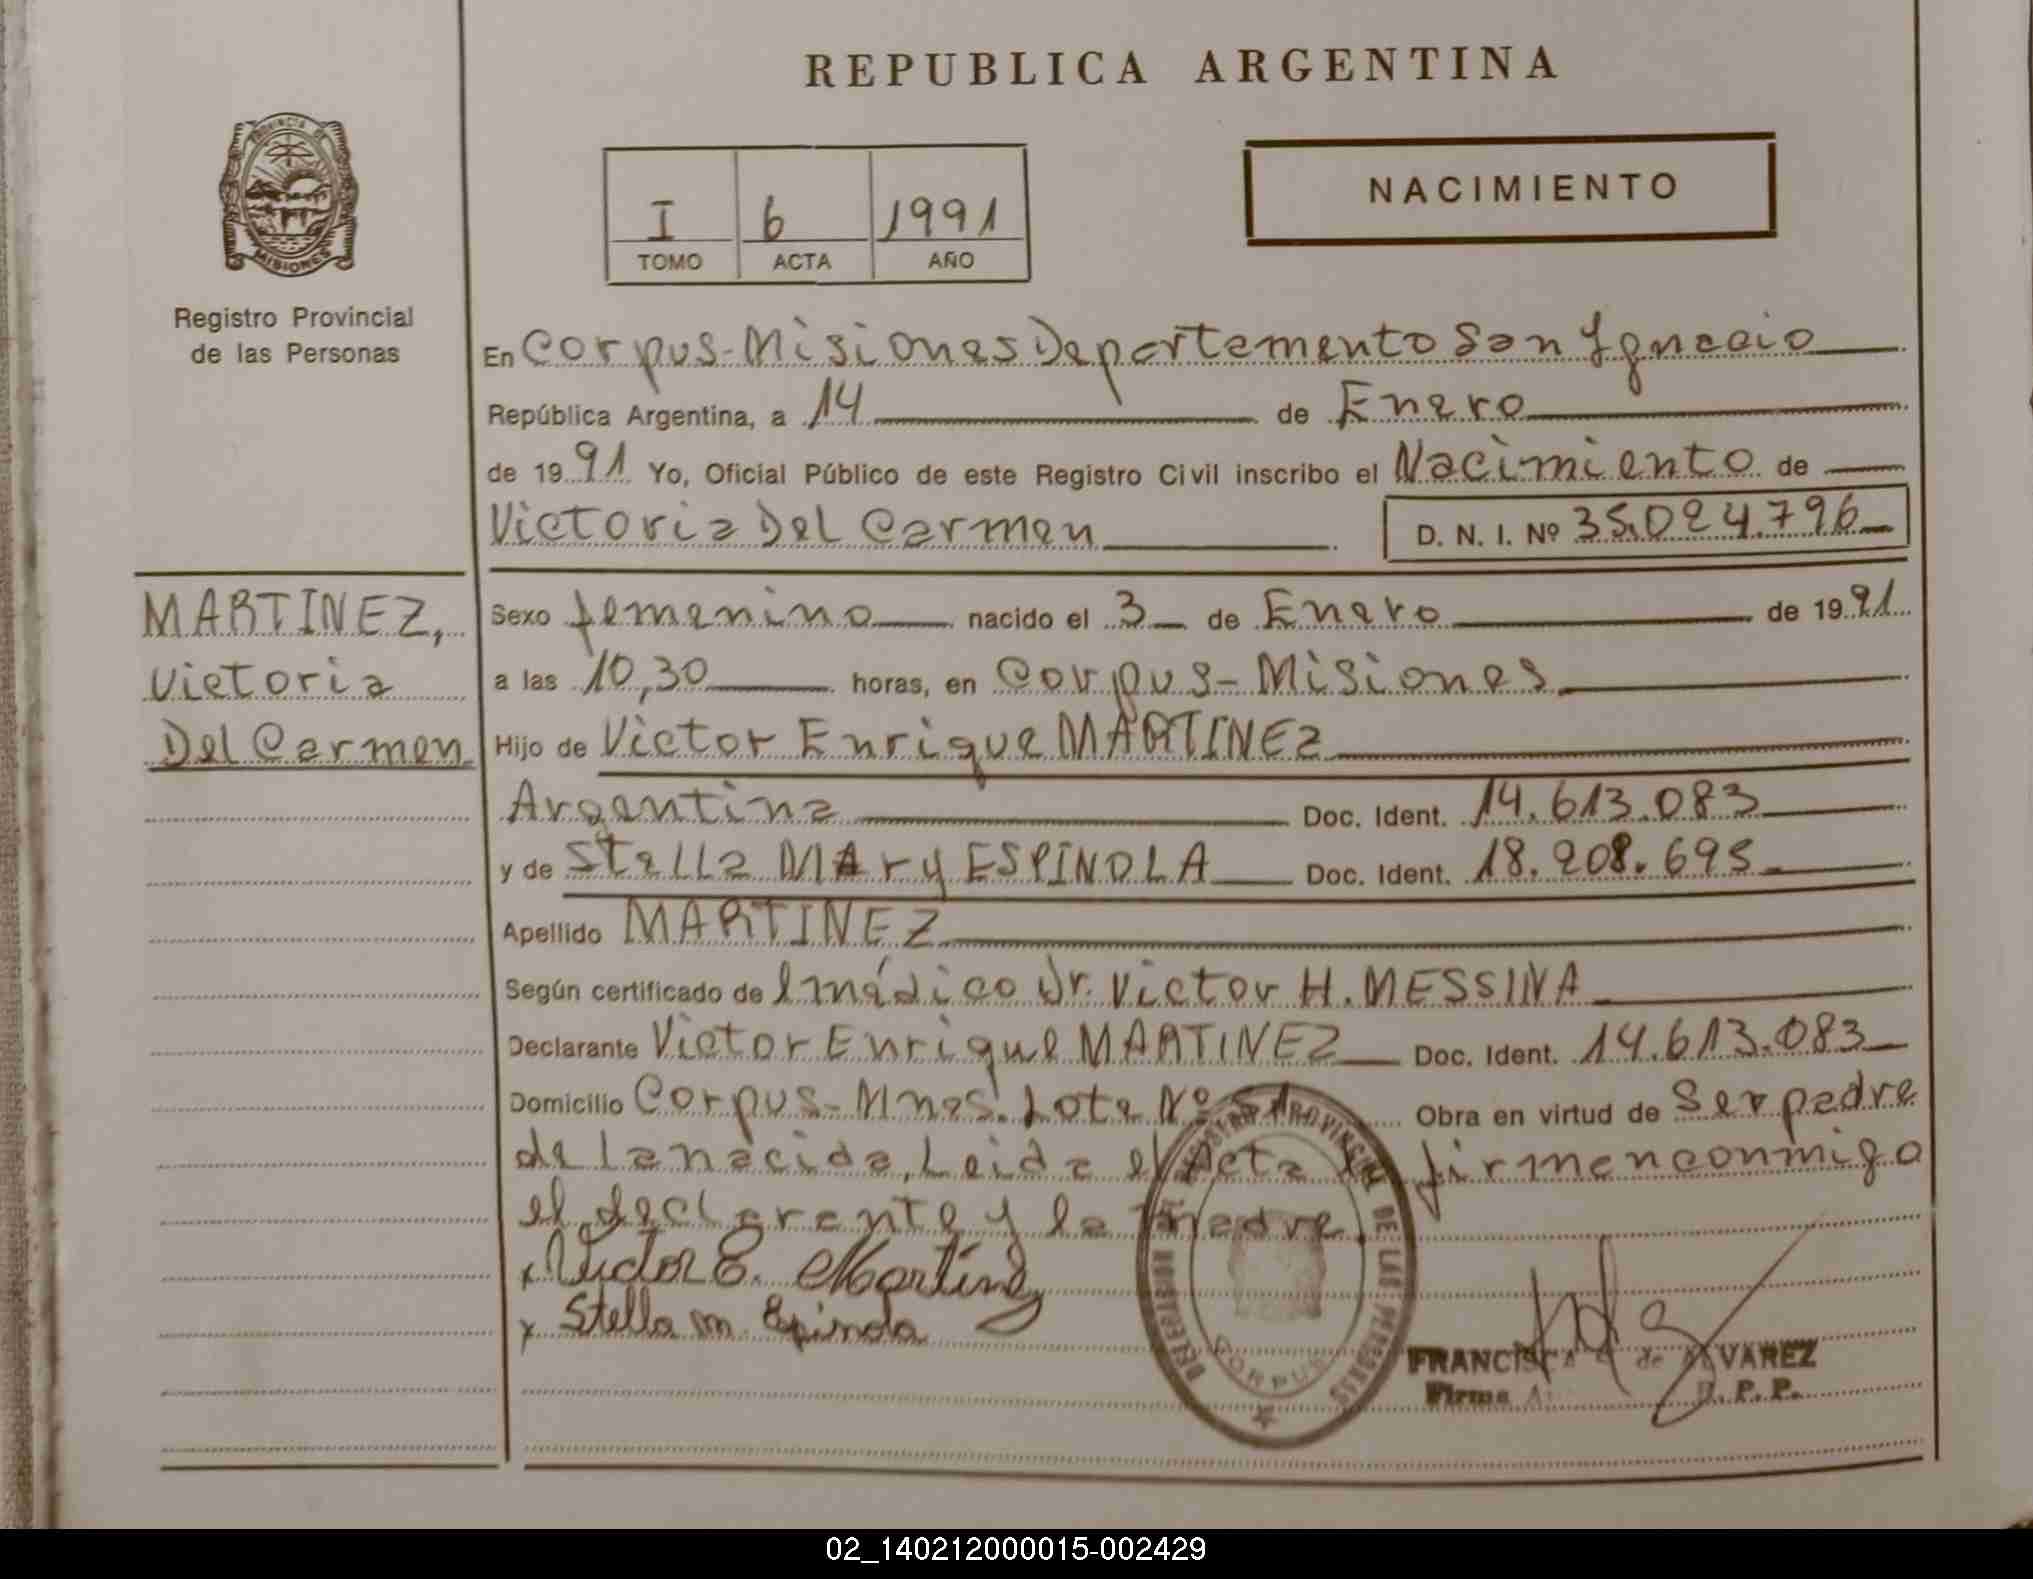 REPUBLICA ARGENTINA
PROVINCIA DE
MISIONES
Registro Provincial
de las Personas
I 6 1991
TOMO ACTA AÑO
NACIMIENTO
En Corpus-Misiones Departamento San Ygnacio
República Argentina, a 14 de Enero
de 1991 Yo, Oficial Público de este Registro Civil inscribo el Nacimiento de
Victoria Del Carmen D. N. I. Nº 35.024.796
MARTINEZ,
Victoria
Del Carmen
Sexo femenino nacido el 3 de Enero de 1991
a las 10,30 horas, en Corpus-Misiones
Hijo de Victor Enrique MARTINEZ
Argentina Doc. Ident. 14.613.083
y de Stella MAry ESPINOLA Doc. Ident. 18.208.695
Apellido MARTINEZ
Según certificado de l médico Dr. Victor H. MESSINA
Declarante Victor Enrique MARTINEZ Doc. Ident. 14.613.083
Domicilio Corpus-Mnes. Lote Nº Obra en virtud de Ser padre
de la nacida, Leida el acta firman conmigo
el declarante y la madre.
x Victor E. Martinez
x Stella m Espinola
REGISTRO PROVINCIAL DE LAS PERSONAS
CORPUS
FRANCISCA de ALVAREZ
Firma
02_140212000015-002429